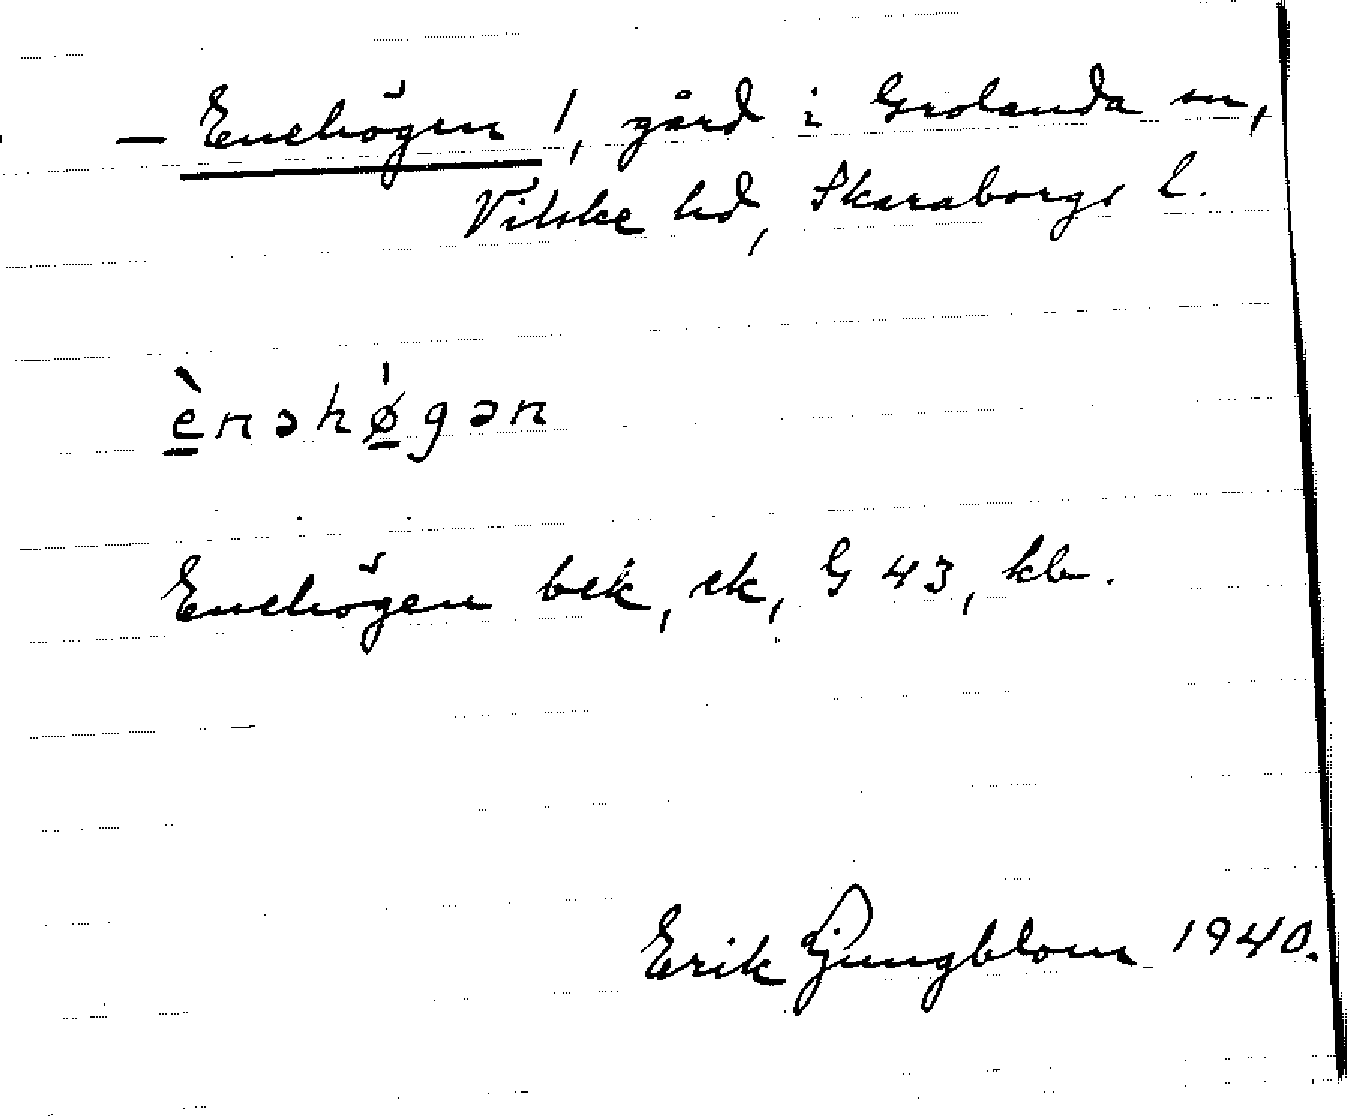 — Enehögen !, gård i Grolanda sn,
Vilske hd, Skaraborgs l.
è̱nəhǿ̱gən
Enehögen bek, ek, G 43, kb.
Erik Ljungblom 1940.